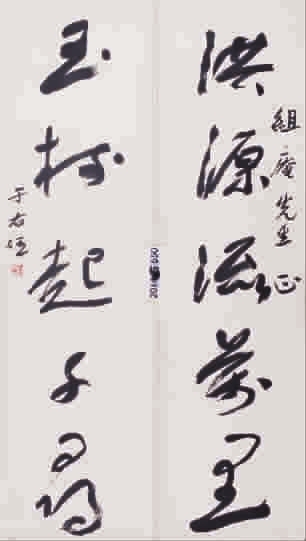 組庵先生正
洪源流萬里
玉樹起千尋
于右任